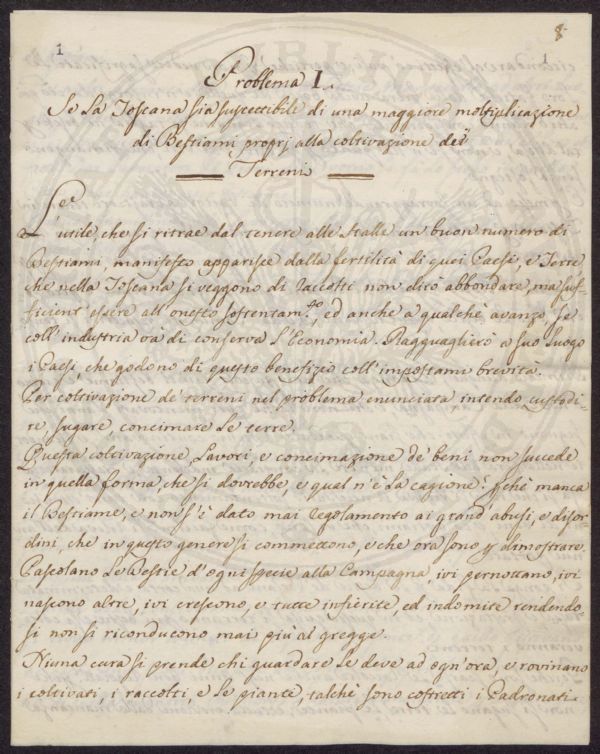 1
8
Problema I.
Se La Toscana sia suscettibile di una maggiore moltiplicazione
di Bestiami proprj alla coltivazione dei
Terreni
L'utile, che si ritrae dal tenere alle Stalle un buon numero di
Bestiami, manifesto apparisce dalla fertilità di quei Paesi, e Terre
che nella Toscana si veggono di raccolti non dirò abbondare, ma suf-
ficienti essere all'onesto sostentam.to, ed anche a qualche avanzo, se
coll'industria và di conserva L'Economia. Ragguaglierò a suo Luogo
i Paesi, che godono di questo benefizio coll'impostami brevità.
Per coltivazione de' terreni nel problema enunciata, intendo custodi-
re, sugare, concimare Le terre.
Questa coltivazione, Lavori, e concimazione de' beni non succede
in quella forma, che si dovrebbe, e qual n'è La cagione? pchè manca
il Bestiame, e non s'è dato mai regolamento ai grand'abusi, e disor-
dini, che in questo genere si commettono, e che ora sono p dimostrare.
Pascolano Le Bestie d'ogni specie alla Campagna, ivi pernottano, ivi
nascono altre, ivi crescono, e tutte infierite, ed indomite rendendo-
si non si riconducono mai più al gregge.
Niuna cura si prende chi guardare Le deve ad ogn'ora, e rovinano
i coltivati, i raccolti, e Le piante, talchè sono costretti i Padronati